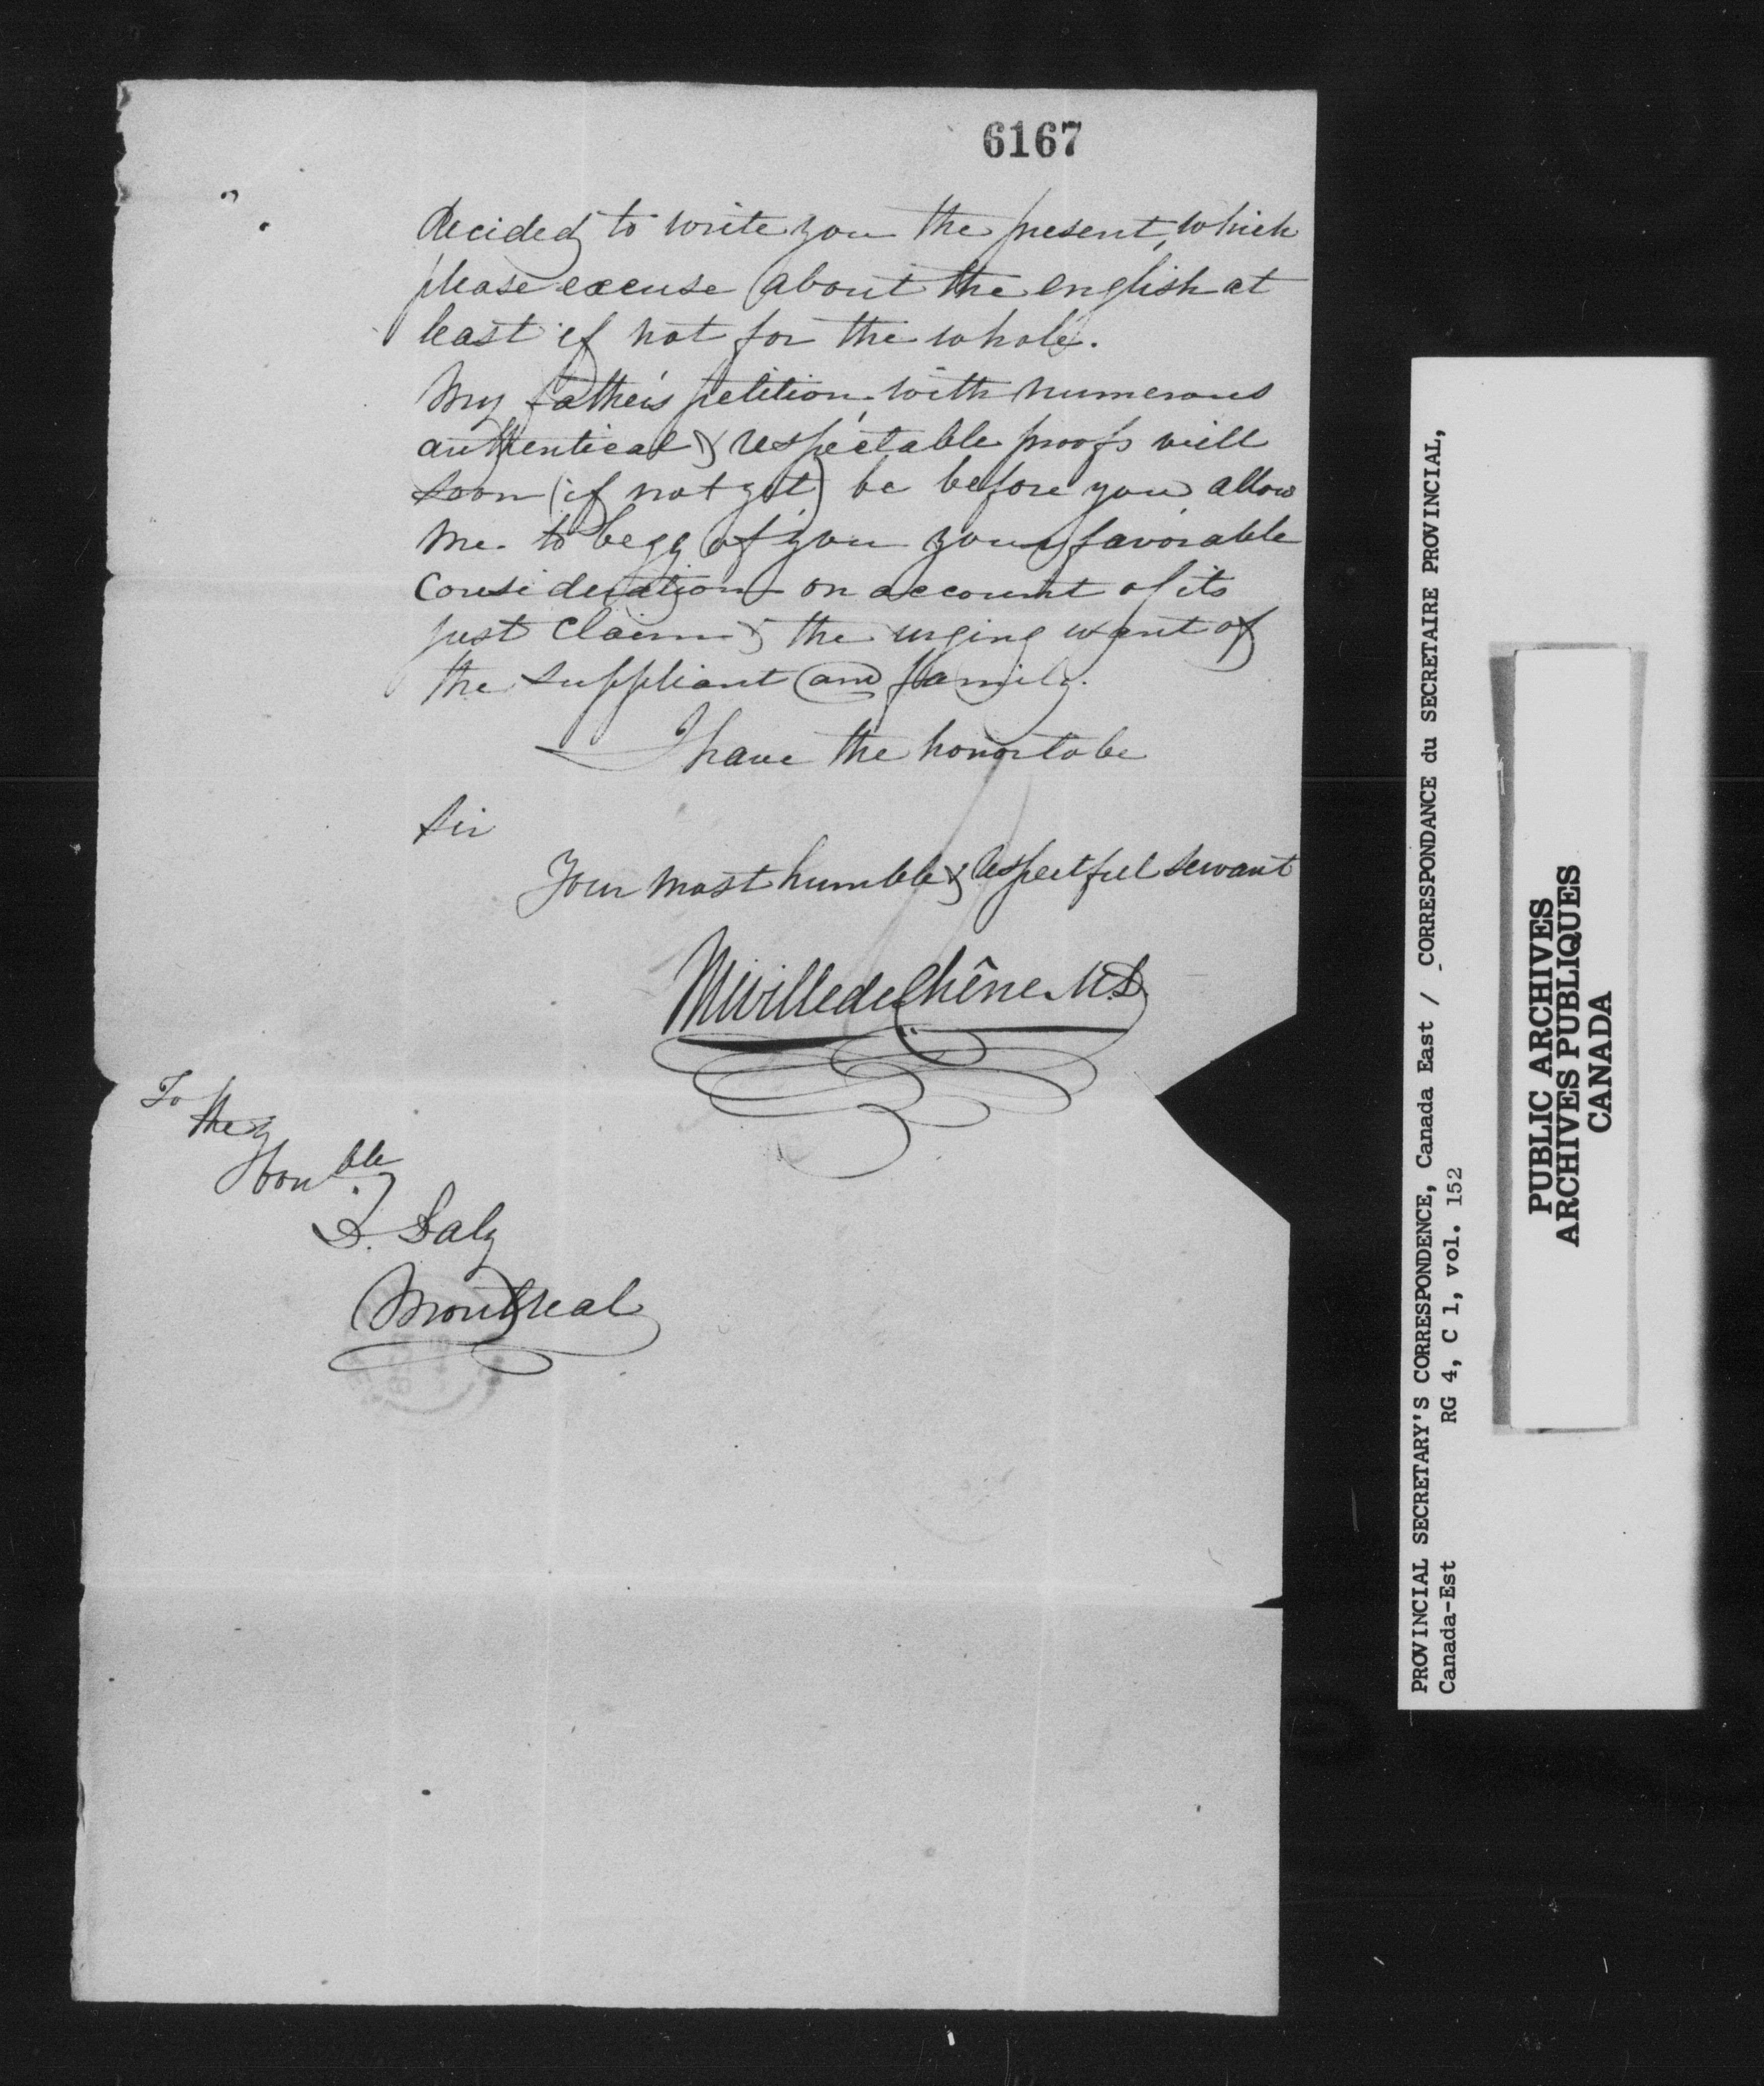 6167
decided to write you the present, which
please excuse about the english at
least if not for the whole.
My father's petition with numerous
authentical & respectable proofs will
soon (if not yet) be before you, allow
me to begg of you your favorable
consideration on account of its
just claim & the urging want of
the suppliant and family.
I have the honor to be
Sir
Your most humble & respectful servant
Miville de Chêne M.D.
To
the
Honble
D. Daly
Montreal
PROVINCIAL SECRETARY'S CORRESPONDENCE, Canada East / CORRESPONDANCE du SECRETAIRE PROVINCIAL,
Canada-Est RG 4, C 1, vol. 152
PUBLIC ARCHIVES
ARCHIVES PUBLIQUES
CANADA